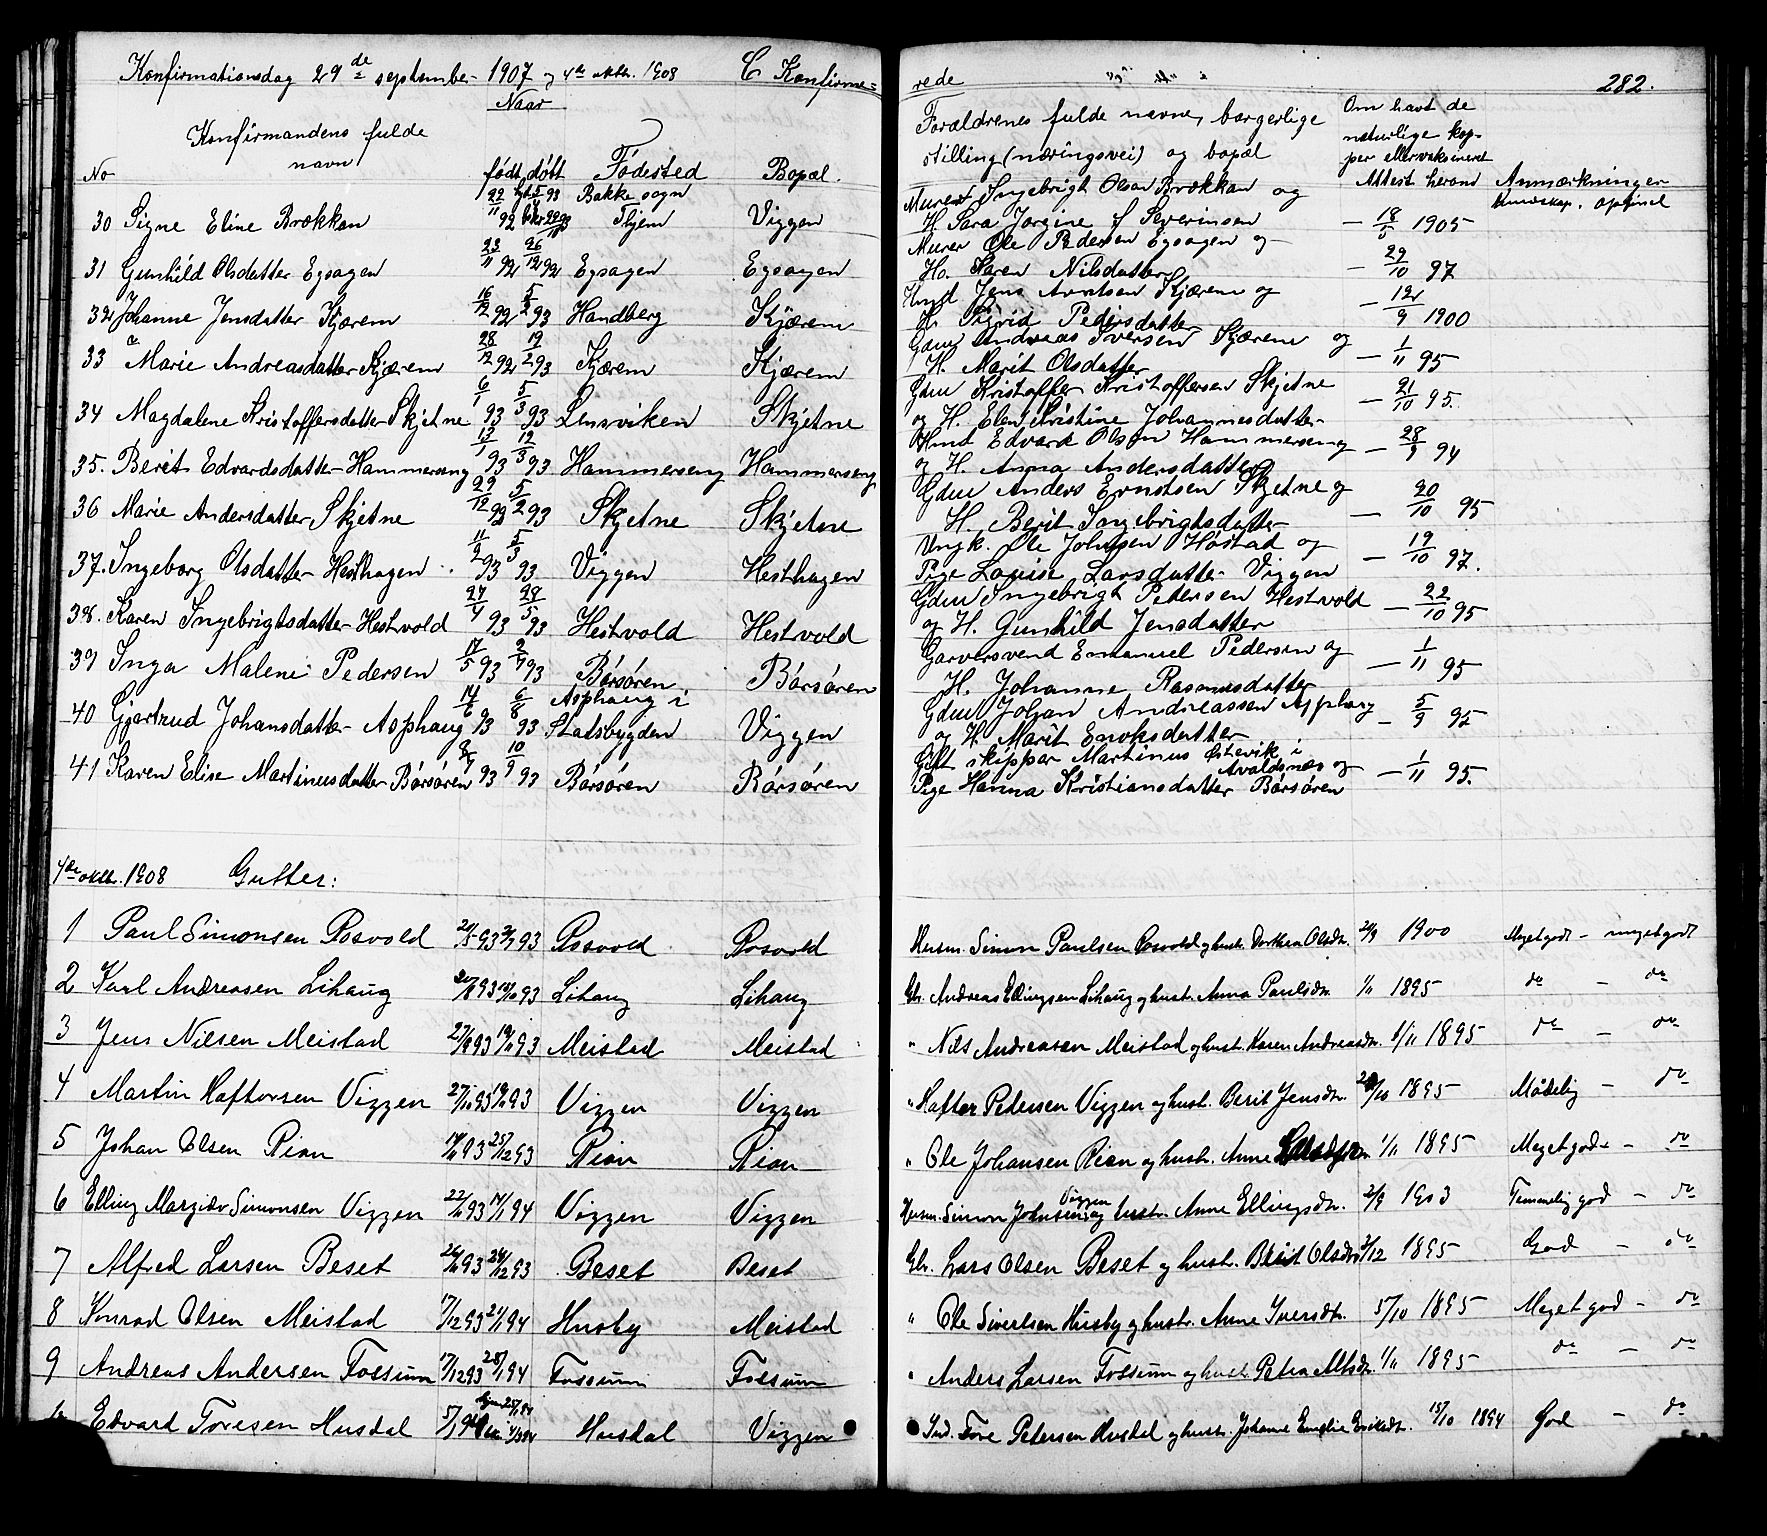 Konfirmationsdag 29de september 1907 og 4de oktbr. 1908 C Konfirme=
rede 282.
Naar
No Konfirmandens fulde navn født døbt Fødested Bopæl.
Forældrenes fulde navne, borgerlige stilling (næringsvei) og bopæl
Om havt de naturlige kopper eller vaksineret Attest herom
Anmærkninger
Kundskap. opførsel
30 Signe Eline Brækkan 22/11 92 Bakke sogn Viggen
Murer Ingebrigt Olsen Brækkan og
H. Sara Jørgine Severinsen — 18/5 1905
31 Gunhild Olsdatter Egsagen 23/11 92 26/12 92 Egsagen Egsagen
Murer Ole Pedersen Egsagen og
H. Karen Nilsdatter — 29/10 97
32 Johanne Jensdatter Kjærem 16/12 92 5/2 93 Handberg Kjærem
Hmd Jens Arntsen Kjærem og
H. Sigrid Pedersdatter — 12/9 1900
33 Marie Andreasdatter Kjærem 28/12 92 19/2 93 Kjærem Kjærem
Gdm Andreas Iversen Kjærem og
H. Marit Olsdatter — 1/11 95
34 Magdalene Kristoffersdatter Skjetne 6/1 93 5/3 93 Lensviken Skjetne
Gdm Kristoffer Kristoffersen Skjetne
og H. Elen Kristine Johannesdatter — 21/10 95.
35. Berit Edvardsdatter Hammerseng 13/1 93 12/3 93 Hammerseng Hammerseng
Hmd Edvard Olsen Hammerseng
og H. Anna Andersdatter — 28/9 94
36 Marie Andersdatter Skjetne 29/12 92 5/2 93 Skjetne Skjetne
Gdm Anders Erntsen Skjetne og
H. Berit Ingebrigtsdatter — 20/10 95
37. Ingeborg Olsdatter Hesthagen 11/2 93 5/3 93 Viggen Hesthagen
Ungk. Ole Johnsen Høstad og
Pige Louise Larsdatter Viggen — 19/10 97.
38. Karen Ingebrigtsdatter Hestvold 27/4 93 28/5 93 Hestvold Hestvold
Gdm Ingebrigt Pedersen Hestvold
og H. Gunhild Jensdatter — 22/10 95
39 Inga Malene Pedersen 17/5 93 2/7 93 Børsøren Børsøren
Garversvend Emanuel Pedersen og
H. Johanne Rasmusdatter — 1/11 95
40 Gjertrud Johansdatter Asphaug 14/6 93 6/8 93 Asphaug i Stadsbygden Viggen
Gdm Johan Andreassen Asphaug
og H. Marit Enoksdatter — 5/9 95
41 Karen Elise Martinusdatter Børsøren 93 10/9 93 Børsøren Børsøren
Gift skipper Martinus Østevik i Avaldsnæs og
Pige Hanna Kristiansdatter Børsøren — 1/11 95.
4de oktbr. 1908 Gutter:
1 Paul Simonsen Rosvold 93 93 Rosvold Rosvold Husm. Simon Paulsen Rosvold og hustr. Dorthea Olsdtr. 1900 Meget godt – meget godt
2 Karl Andreasen Lihaug 93 93 Lihaug Lihaug Gbr. Andreas Ellingsen Lihaug og hustr. Anna Paulsdtr. 1/11 1895 do – do
3 Jens Nilsen Meistad 93 93 Meistad Meistad " Nils Andreasen Meistad og hustr. Karen Andreasdtr. 1/11 1895 do – do
4 Martin Haftorsen Viggen 27/10 93 93 Viggen Viggen " Haftor Pedersen Viggen og hustr. Berit Jensdtr. 1895 Mådelig – do
5 Johan Olsen Rian 93 25/12 93 Rian Rian " Ole Johansen Rian og hustr. Anne 1/11 1895 Meget god – do
6 Elling Margido Simonsen Viggen 22/11 93 14/1 94 Viggen Viggen Husm. Simon Johnsen Viggen og hustr. Anne Ellingsdtr. 2/9 1903 Temmelig god – do
7 Alfred Larsen Beset 26/11 93 24/12 93 Beset Beset Gbr. Lars Olsen Beset og hustr. Berit Olsdtr. 1895 God – do
8 Konrad Olsen Meistad 17/12 93 21/1 94 Husby Meistad " Ole Sivertsen Husby og hustr. Anne Iversdtr. 5/10 1895 Meget god – do
9 Andreas Andersen Fossum 17/12 93 28/1 94 Fossum Fossum " Anders Larsen Fossum og hustr. Petra 1/11 1895 do – do
Edvard Toresen Husdal 5/1 94 Husdal Viggen Ind. Tore Petersen Husdal og hustr. Johanne Emelie Eriksdtr. 15/10 1894 God – do